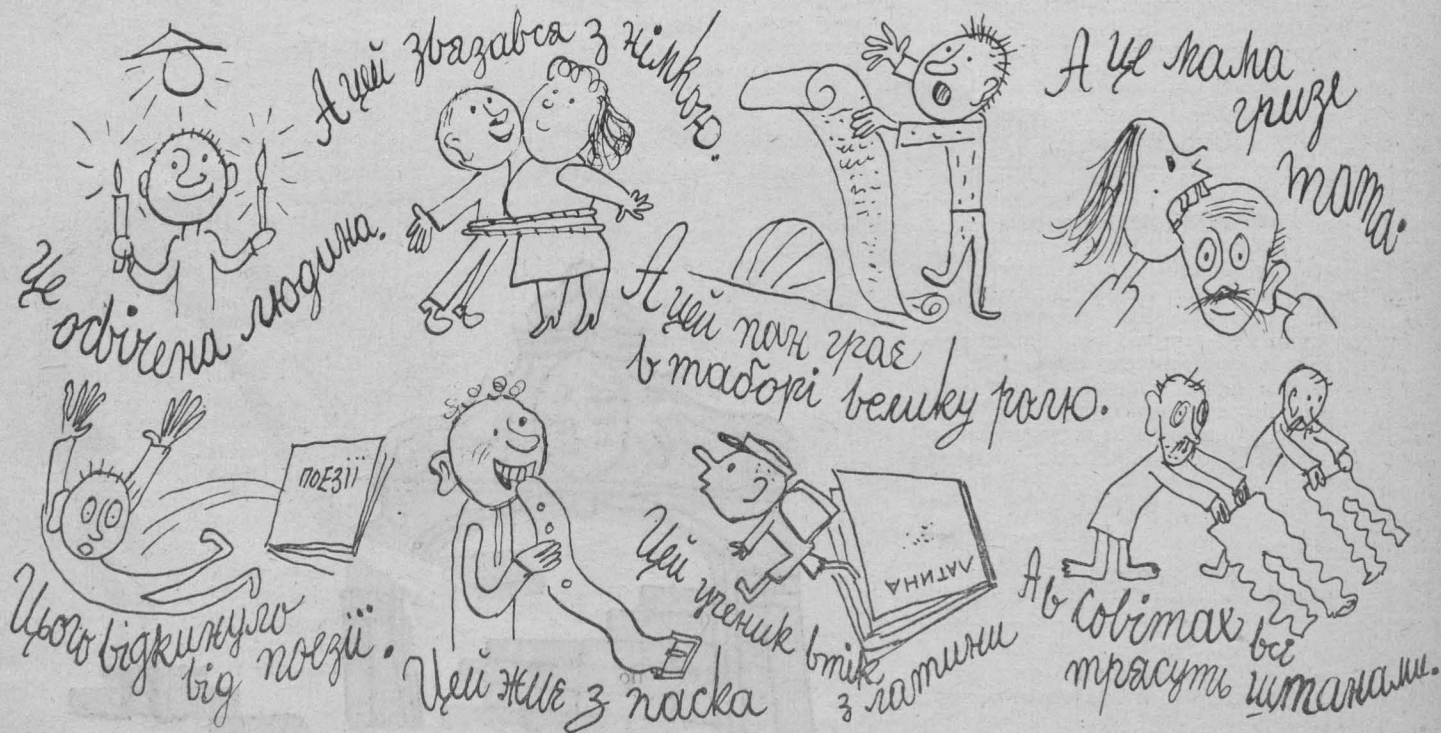 Це
освічена людина.
А цей звязався з німкою.
А цей пан грає
в таборі велику ролю.
А це мама
гризе
тата.
ПОЕЗІЇ
Цього відкинуло
від поезії...
Цей жиє з паска
ЛАТИНА
Цей ученик втік
з латини
А в Совітах всі
трясуть штанами.